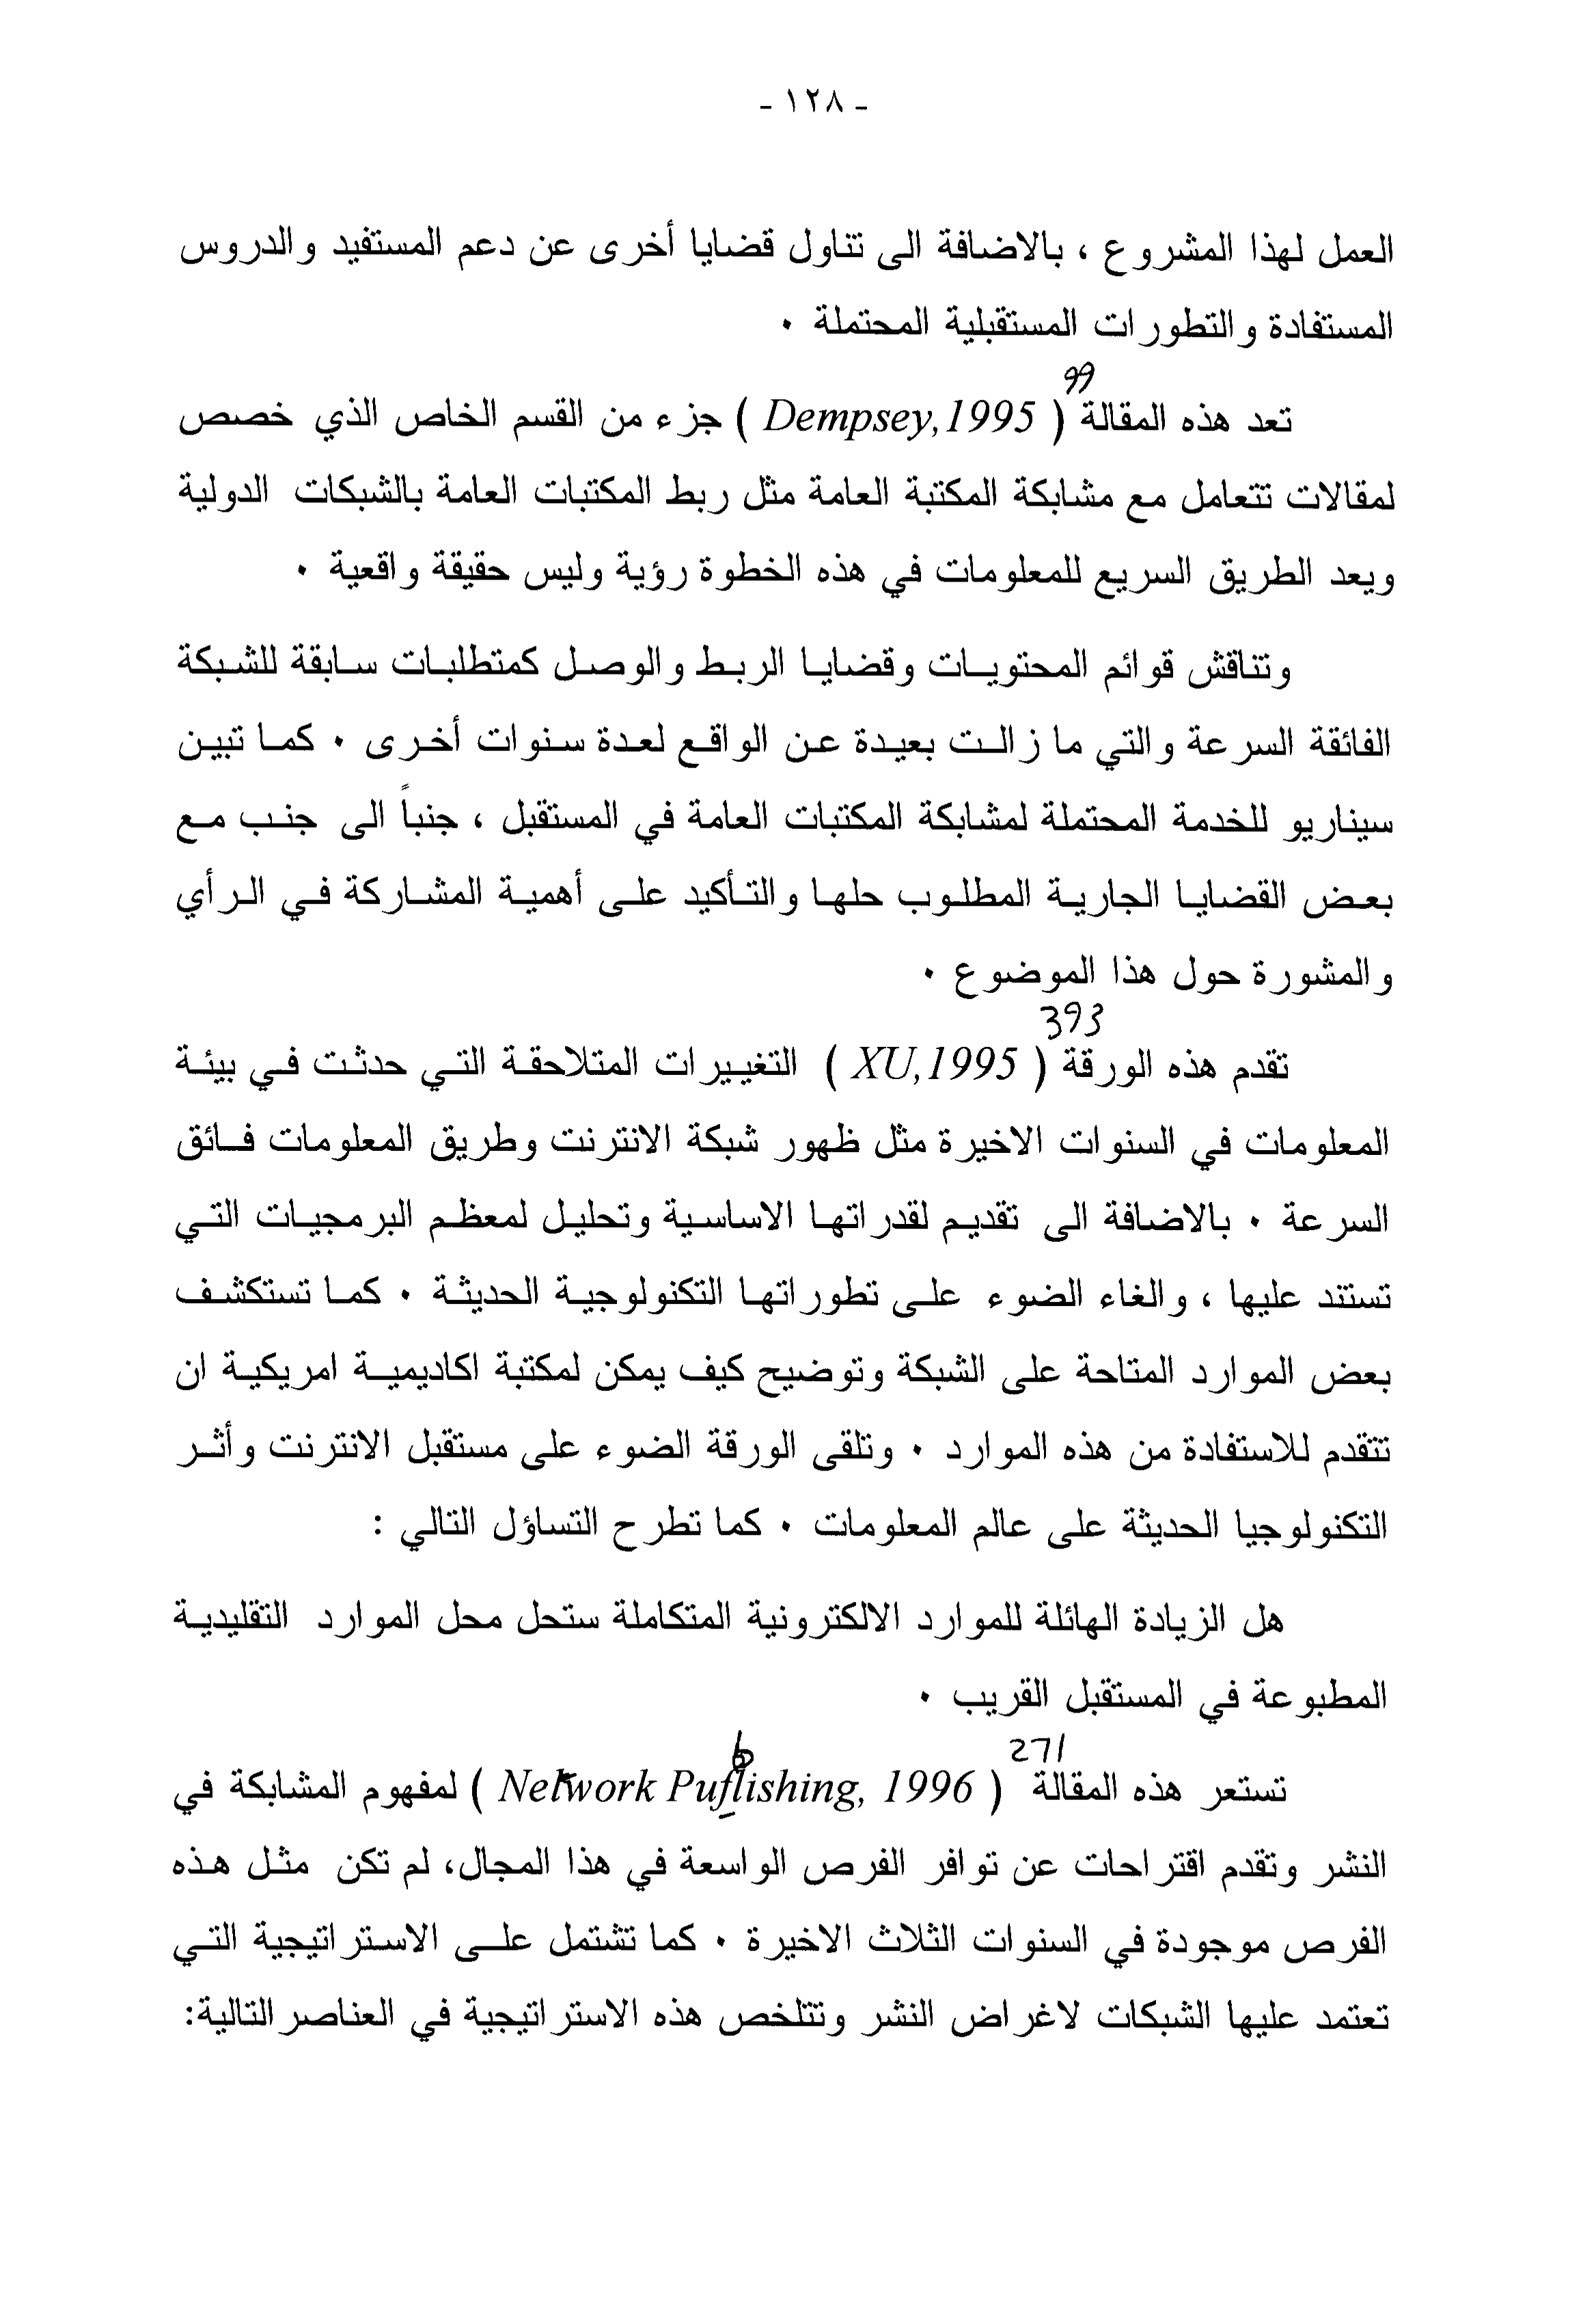 - ١٢٨ -
العمل لهذا المشروع ، بالاضافة الى تناول قضايا أخرى عن دعم المستفيد والدروس
المستفادة والتطورات المستقبلية المحتملة ٠
99
تعد هذه المقالة ( Dempsey,1995 ) جزء من القسم الخاص الذي خصص
لمقالات تتعامل مع مشابكة المكتبة العامة مثل ربط المكتبات العامة بالشبكات الدولية
ويعد الطريق السريع للمعلومات في هذه الخطوة رؤية وليس حقيقة واقعية ٠
وتناقش قوائم المحتويات وقضايا الربط والوصل كمتطلبات سابقة للشبكة
الفائقة السرعة والتي ما زالت بعيدة عن الواقع لعدة سنوات أخرى ٠ كما تبين
سيناريو للخدمة المحتملة لمشابكة المكتبات العامة في المستقبل ، جنباً الى جنب مع
بعض القضايا الجارية المطلوب حلها والتأكيد على أهمية المشاركة في الرأي
والمشورة حول هذا الموضوع ٠
393
تقدم هذه الورقة ( XU,1995 ) التغييرات المتلاحقة التي حدثت في بيئة
المعلومات في السنوات الاخيرة مثل ظهور شبكة الانترنت وطريق المعلومات فائق
السرعة ٠ بالاضافة الى تقديم لقدراتها الاساسية وتحليل لمعظم البرمجيات التي
تستند عليها ، والغاء الضوء على تطوراتها التكنولوجية الحديثة ٠ كما تستكشف
بعض الموارد المتاحة على الشبكة وتوضيح كيف يمكن لمكتبة اكاديمية امريكية ان
تتقدم للاستفادة من هذه الموارد ٠ وتلقى الورقة الضوء على مستقبل الانترنت وأثر
التكنولوجيا الحديثة على عالم المعلومات ٠ كما تطرح التساؤل التالي :
هل الزيادة الهائلة للموارد الالكترونية المتكاملة ستحل محل الموارد التقليدية
المطبوعة في المستقبل القريب ٠
271
تستعر هذه المقالة ( Network Publishing, 1996 ) لمفهوم المشابكة في
النشر وتقدم اقتراحات عن توافر الفرص الواسعة في هذا المجال، لم تكن مثل هذه
الفرص موجودة في السنوات الثلاث الاخيرة ٠ كما تشتمل على الاستراتيجية التي
تعتمد عليها الشبكات لاغراض النشر وتتلخص هذه الاستراتيجية في العناصر التالية: